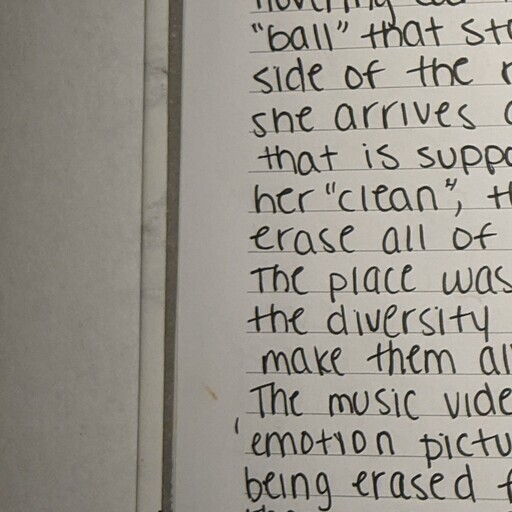 "ball" that
side of the
she arrives
that is
her "clean",
erase all of
The place was
the diversity
make them
The music
emotion
being erased